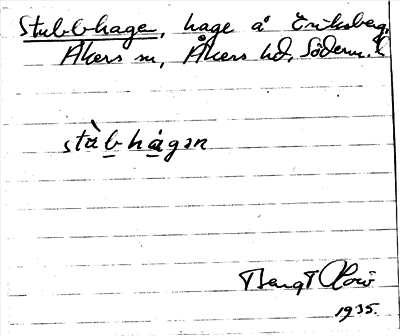 Stubbhagen, hage å Eriksberg,
Åkers sn, Åkers hd, Söderm. l
stùbhágən
Bengt
1935.